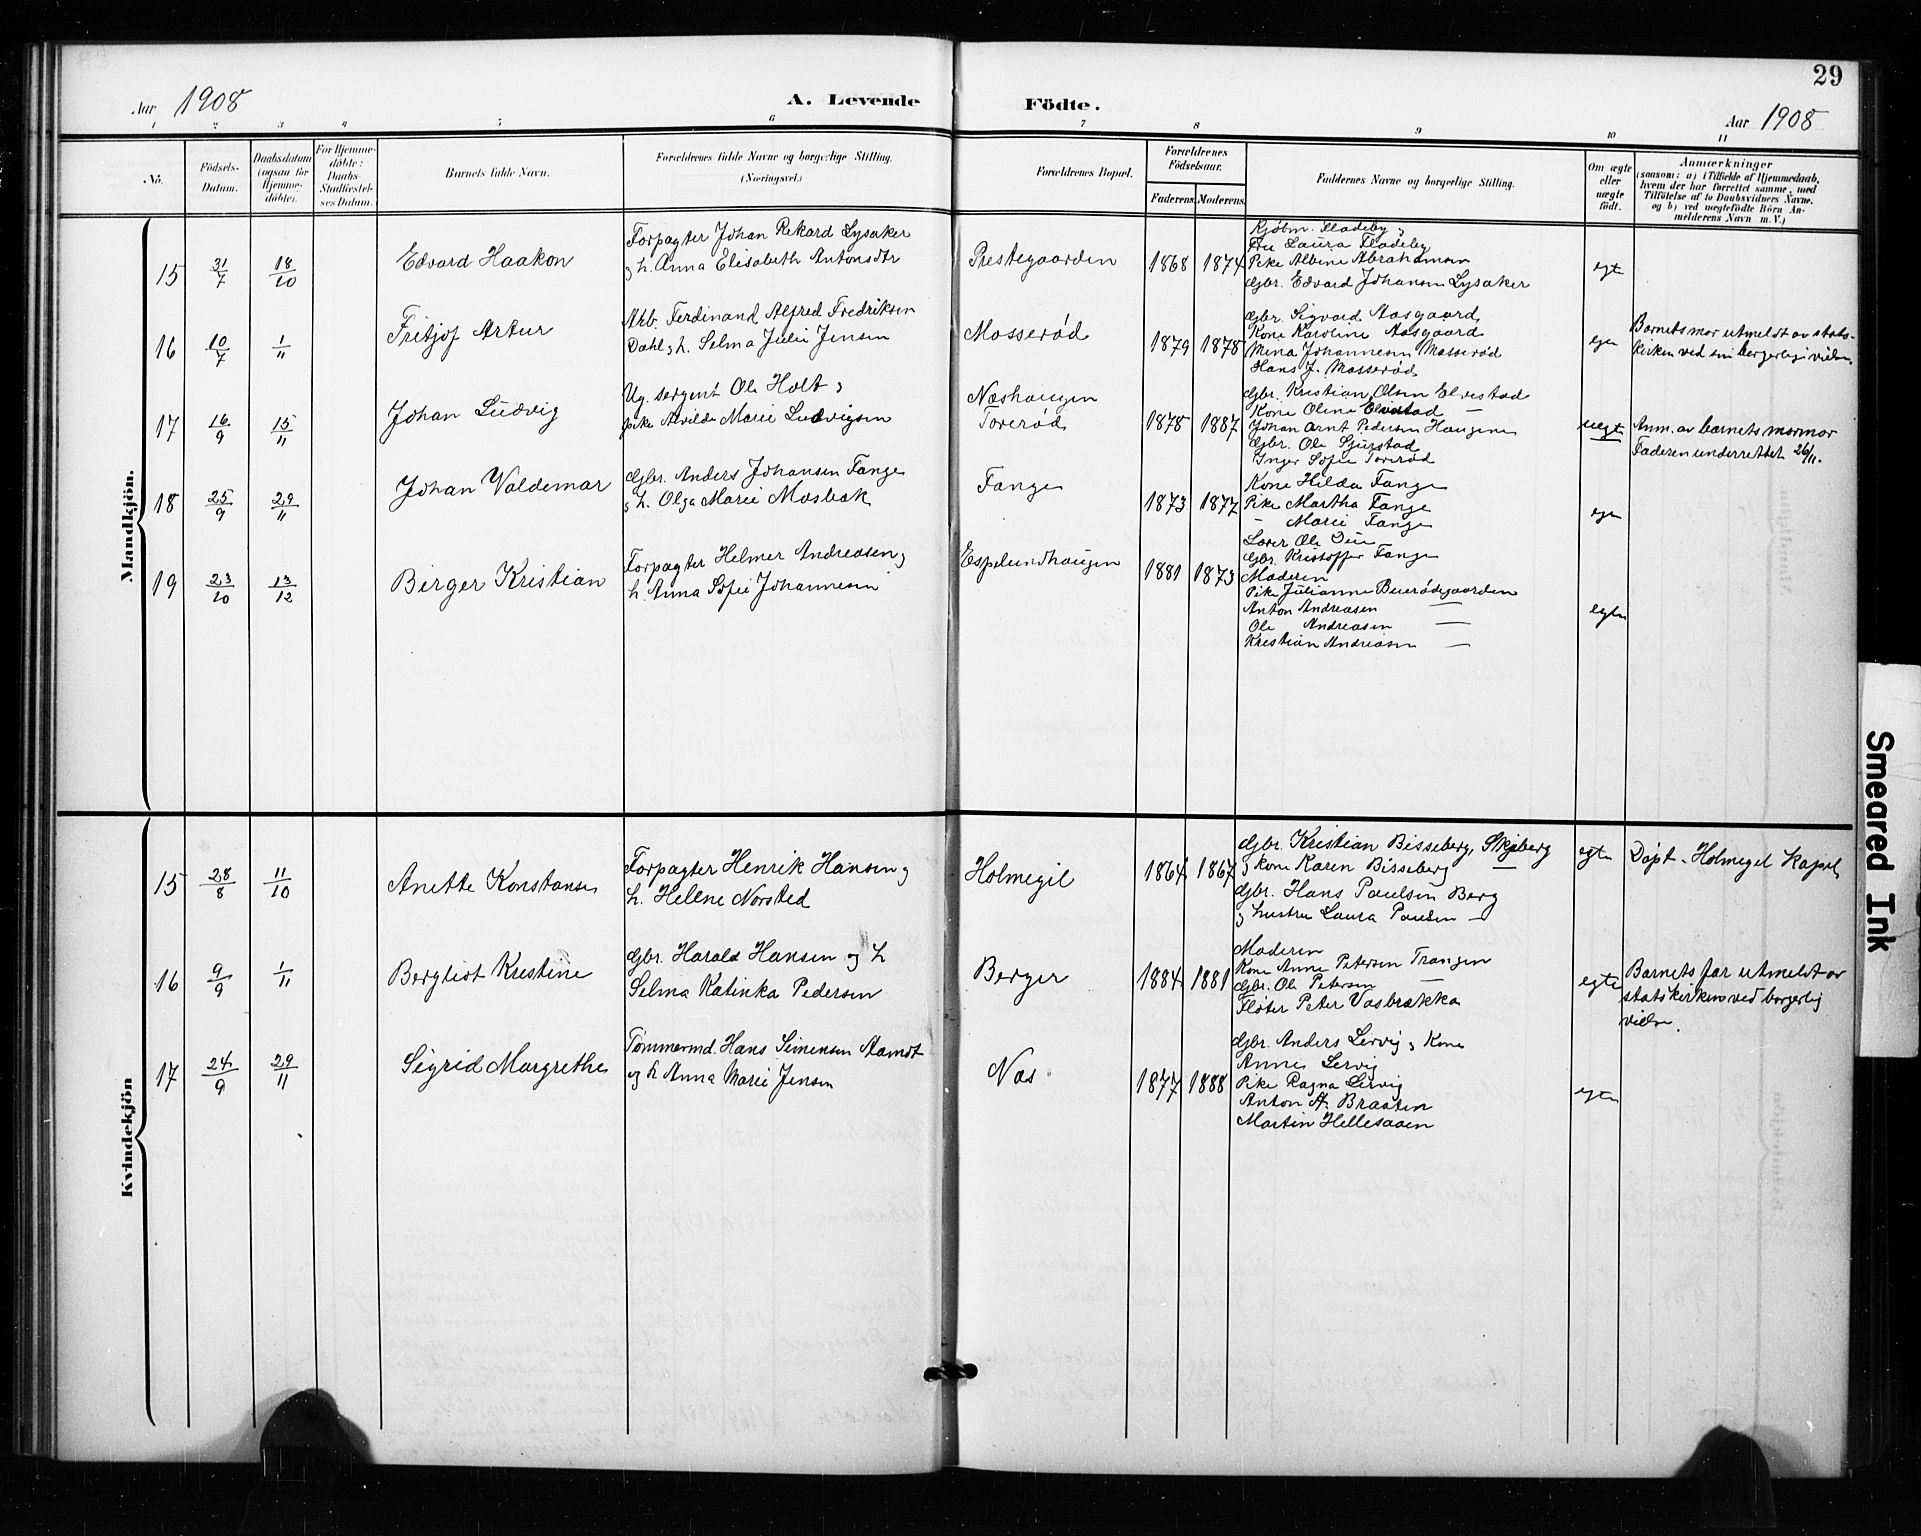 29
Aar 1908
A. Levende Födte.
Aar 1908
1 2 3 4 5 6 7 8 9 10 11
No.
Födsels-Datum.
Daabsdatum (ogsaa for Hjemme-döbte).
For Hjemme-döbte: Daabs-Stadfæstel-ses Datum.
Barnets fulde Navn.
Forældrenes fulde Navne og borgerlige Stilling. (Næringsvei.)
Forældrenes Bopæl.
Forældrenes Födselsaar.
Faderens. Moderens.
Faddernes Navne og borgerlige Stilling.
Om ægte eller uægte födt.
Anmærkninger
(saasom: a) i Tilfælde af Hjemmedaab,
hvem der har forrettet samme, med
Tilföielse af to Daabsvidners Navne.
og b) ved uægtefödte Börn An-
melderens Navn m. V.)
Mandkjön.
15 31/7 18/10 Edvard Haakon
Forpagter Johan Rikard Lysaker
og h. Anna Elisabeth Antonsdtr
Prestegaarden 1868 1874
Kjøbm. Fladeby og
Fru Laura Fladeby
Pike Albine Abrahamsen
Gbr. Edvard Johansen Lysaker
egte
16 10/7 1/11 Fritjof Artur
Arb. Ferdinand Alfred Fredriksen
Dahl og h. Selma Julie Jensen
Mosserød 1879 1878
Gbr. Sigvard Aasgaard
Kone Karoline Aasgaard
Mina Johannesen Mosserød
Hans J. Mosserød
egte
Barnets mor utmeldt av stats-
kirken ved sin borgerlige vielse.
17 16/9 15/11 Johan Ludvig
Ug. sergent Ole Holt og
pike Alvilde Marie Ludvigsen
Næshaugen
Torerød 1878 1887
Gbr. Kristian Olsen Elvestad
Kone Oline Elvestad —
Johan Arnt Pedersen Haugene
Gbr. Ole Sjurstad
Inger Sofie Torerød
uegte
Anm. av barnets mormor
Faderen underrettet 26/11.
18 25/9 29/11 Johan Valdemar
Gbr. Anders Johansen Fange
og h. Olga Marie Mosbæk
Fange 1873 1877
Kone Hilda Fange
Pike Martha Fange
— Marie Fange
Lærer Ole Due
Gbr. Kristoffer Fange
egte
19 23/10 13/12 Birger Kristian
Forpagter Helmer Andreasen og
h. Anna Sofie Johannesen
Espelundhaugen 1881 1873
Moderen
Pike Julianne Buerødegaarden
Anton Andreasen —
Ole Andreasen —
Kristian Andreasen —
egte
Kvindekjön
15 28/8 11/10 Anette Konstanse
Forpagter Henrik Hansen og
h. Hellene Norsted
Holmegil 1864 1867
Gbr. Kristian Bisseberg, Skjeberg
og kone Karen Bisseberg —
Gbr. Hans Paulsen Berg
og hustru Laura Paulsen —
egte
Døpt i Holmegil kapel
16 9/9 1/11 Bergliot Kristine
Gbr. Harald Hansen og h
Selma Katinka Pedersen
Berger 1884 1881
Moderen
Kone Anne Petersen Trangen
Gbr. Ole Petersen —
Fløter Peter Vasbrækka
egte
Barnets far utmeldt av
statskirken ved borgerlig
vielse.
17 24/9 29/11 Sigrid Margrethe
Tømmermd. Hans Simensen Aamodt
og h Anna Marie Jensen
Næs 1877 1888
Gbr. Anders Lervig og Kone
Anne Lervig
Pike Ragna Lervig
Anton A. Braaten
Martin Hellesaaen
egte
Smeared Ink